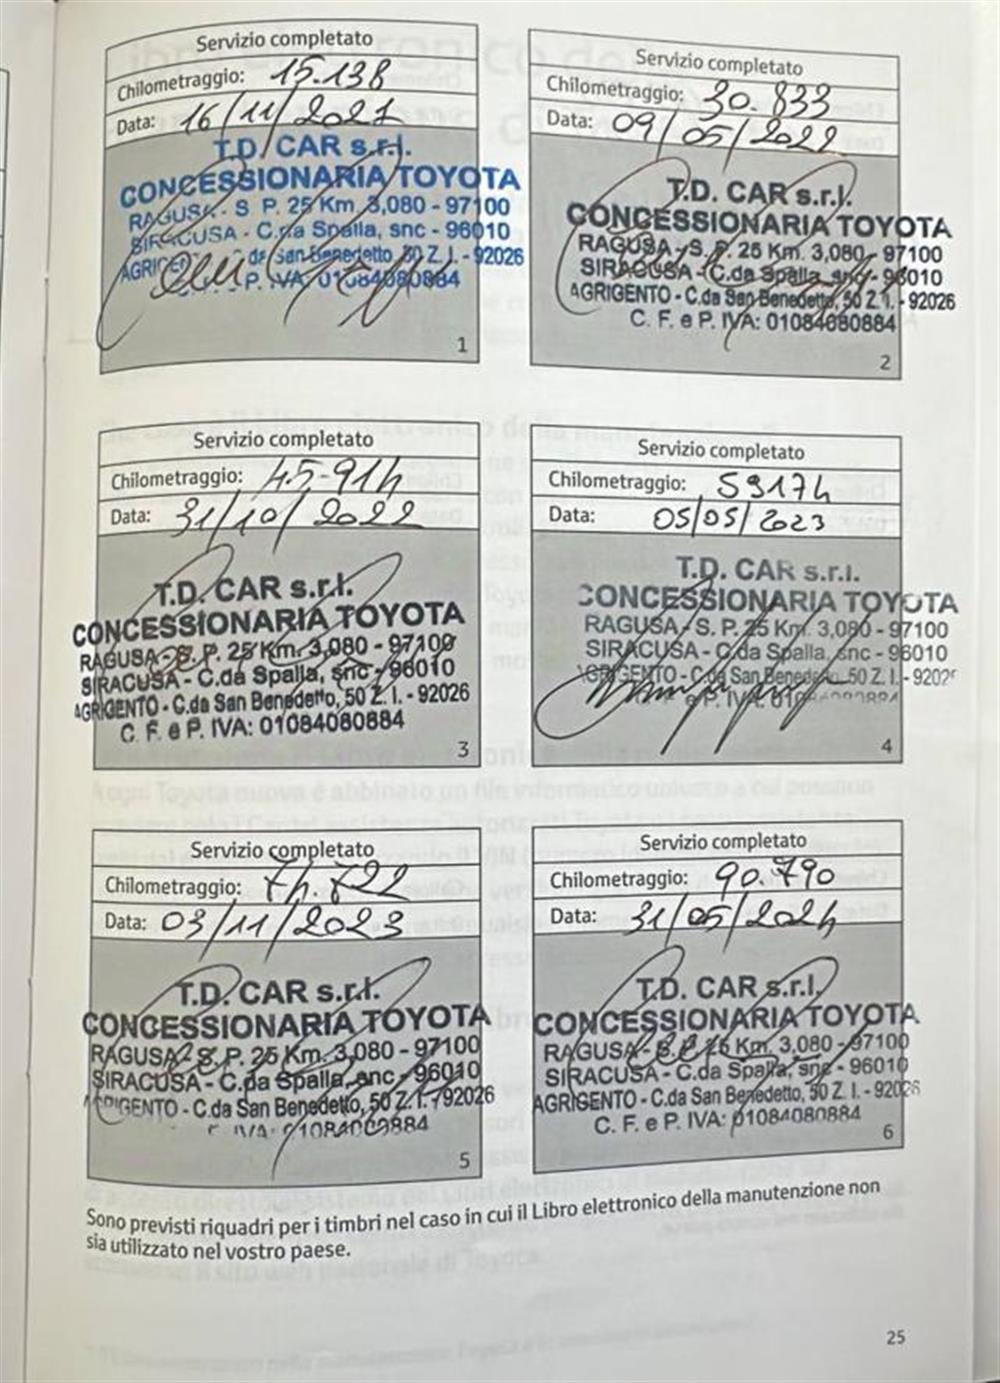 Servizio completato
Chilometraggio: 15.138
Data: 16/11/2021
T.D. CAR s.r.l.
CONCESSIONARIA TOYOTA
RAGUSA - S P. 25 Km. 3,080 - 97100
SIRACUSA - C.da Spalla, snc - 96010
da San Benedetto, 50 Z. I. - 92026
P. IVA: 01084080884
1
Servizio completato
Chilometraggio: 30.833
Data: 09/05/2022
T.D. CAR s.r.l.
CONCESSIONARIA TOYOTA
RAGUSA - S. P. 25 Km. 3,080 - 97100
SIRACUSA - C.da Spalla, snc - 96010
AGRIGENTO - C.da San Benedetto, 50 Z. I. - 92026
C. F. e P. IVA: 01084080884
2
Servizio completato
Chilometraggio: 45.914
Data: 31/10/2022
T.D. CAR s.r.l.
CONCESSIONARIA TOYOTA
RAGUSA - S. P. 25 Km. 3,080 - 97100
SIRACUSA - C.da Spalla, snc - 96010
AGRIGENTO - C.da San Benedetto, 50 Z. I. - 92026
C. F. e P. IVA: 01084080884
3
Servizio completato
Chilometraggio: 59174
Data: 05/05/2023
T.D. CAR s.r.l.
CONCESSIONARIA TOYOTA
RAGUSA - S. P. 25 Km. 3,080 - 97100
SIRACUSA - C.da Spalla, snc - 96010
AGRIGENTO - C.da San Benedetto, 50 Z. I. - 9202
e P. IVA:
4
Servizio completato
Chilometraggio: 74.722
Data: 03/11/2023
T.D. CAR s.r.l.
CONCESSIONARIA TOYOTA
RAGUSA - S. P. 25 Km. 3,080 - 97100
SIRACUSA - C.da Spalla, snc - 96010
AGRIGENTO - C.da San Benedetto, 50 Z. I. - 92026
IVA: 01084080884
5
Servizio completato
Chilometraggio: 90.790
Data: 31/05/2024
T.D. CAR s.r.l.
CONCESSIONARIA TOYOTA
RAGUSA - S. P. 25 Km. 3,080 - 97100
SIRACUSA - C.da Spalla, snc - 96010
AGRIGENTO - C.da San Benedetto, 50 Z. I. - 92026
C. F. e P. IVA: 01084080884
6
Sono previsti riquadri per i timbri nel caso in cui il Libro elettronico della manutenzione non
sia utilizzato nel vostro paese.
25